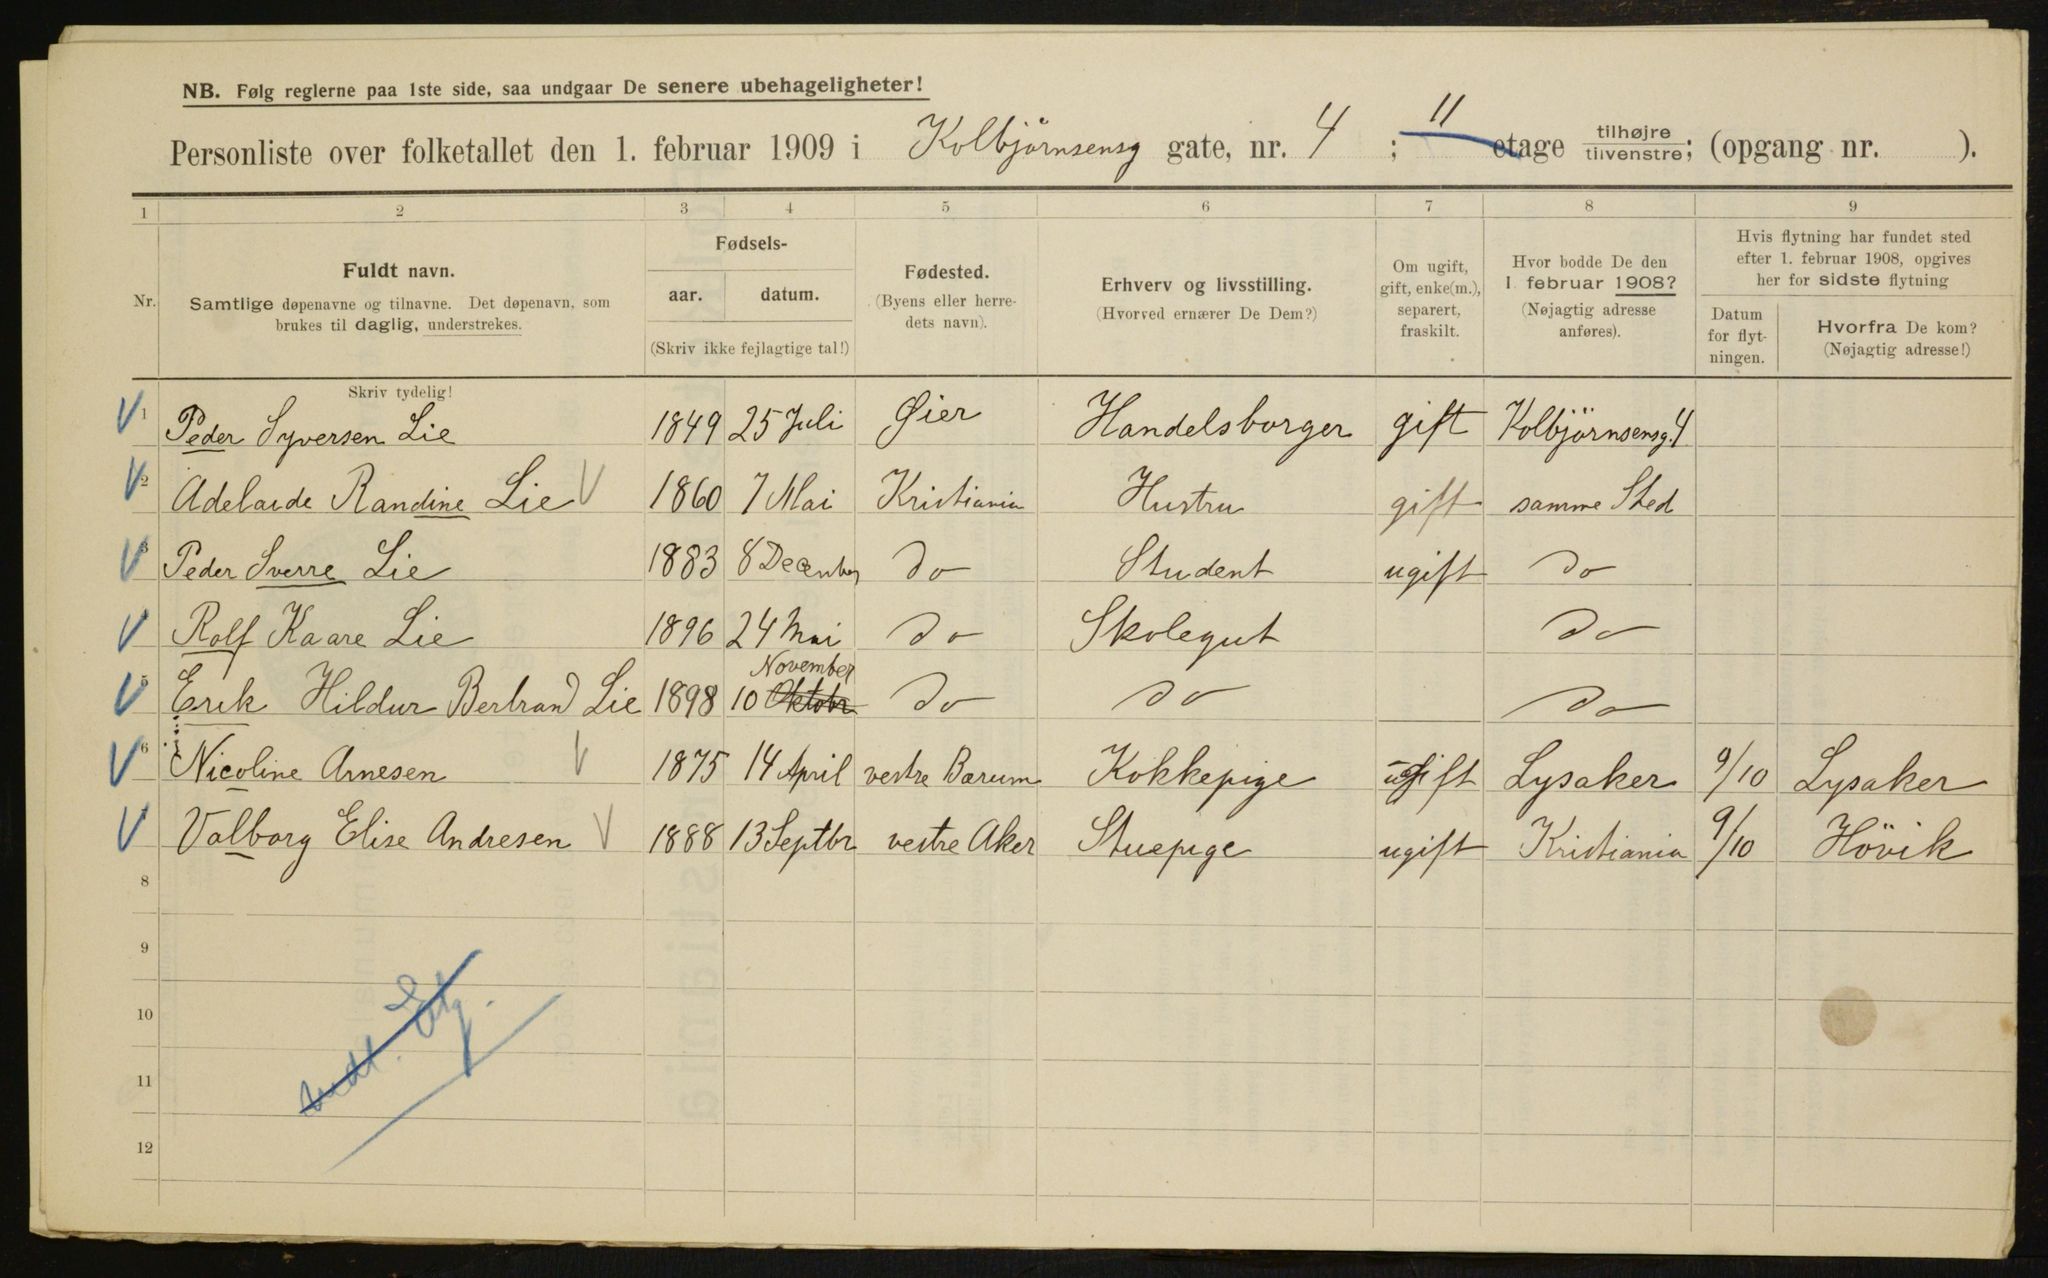 NB. Følg reglerne paa 1ste side, saa undgaar De senere ubehageligheter!
Personliste over folketallet den 1. februar 1909 i Kolbjörnsensg gate, nr. 4 ; 11 etage tilhøjre / tilvenstre; (opgang nr. ).
1 2 3 4 5 6 7 8 9
Nr.
Fuldt navn.
Samtlige døpenavne og tilnavne. Det døpenavn, som
brukes til daglig, understrekes.
Fødsels-
aar. datum.
(Skriv ikke fejlagtige tal!)
Fødested.
(Byens eller herre-
dets navn).
Erhverv og livsstilling.
(Hvorved ernærer De Dem?)
Om ugift,
gift, enke(m.),
separert,
fraskilt.
Hvor bodde De den
1. februar 1908?
(Nøjagtig adresse
anføres).
Hvis flytning har fundet sted
efter 1. februar 1908, opgives
her for sidste flytning
Datum
for flyt-
ningen.
Hvorfra De kom?
(Nøjagtig adresse!)
Skriv tydelig!
1 Peder Syversen Lie 1849 25 Juli Øier Handelsborger gift Kolbjörnsensg. 4
2 Adelaide Randine Lie 1860 7 Mai Kristiania Hustru gift samme Sted
3 Peder Sverre Lie 1883 8 December do Student ugift do
Rolf Kaare Lie 1896 24 Mai do Skolegut do
November
5 Erik Hildur Bertrand Lie 1898 10 Oktobr do do do
6 Nicoline Arnesen 1875 14 April vestre Bærum Kokkepige ugift Lysaker 9/10 Lysaker
Valborg Elise Andresen 1888 13 Septbr vestre Aker Stuepige ugift Kristiania 9/10 Hövik
8
9
10
11
12